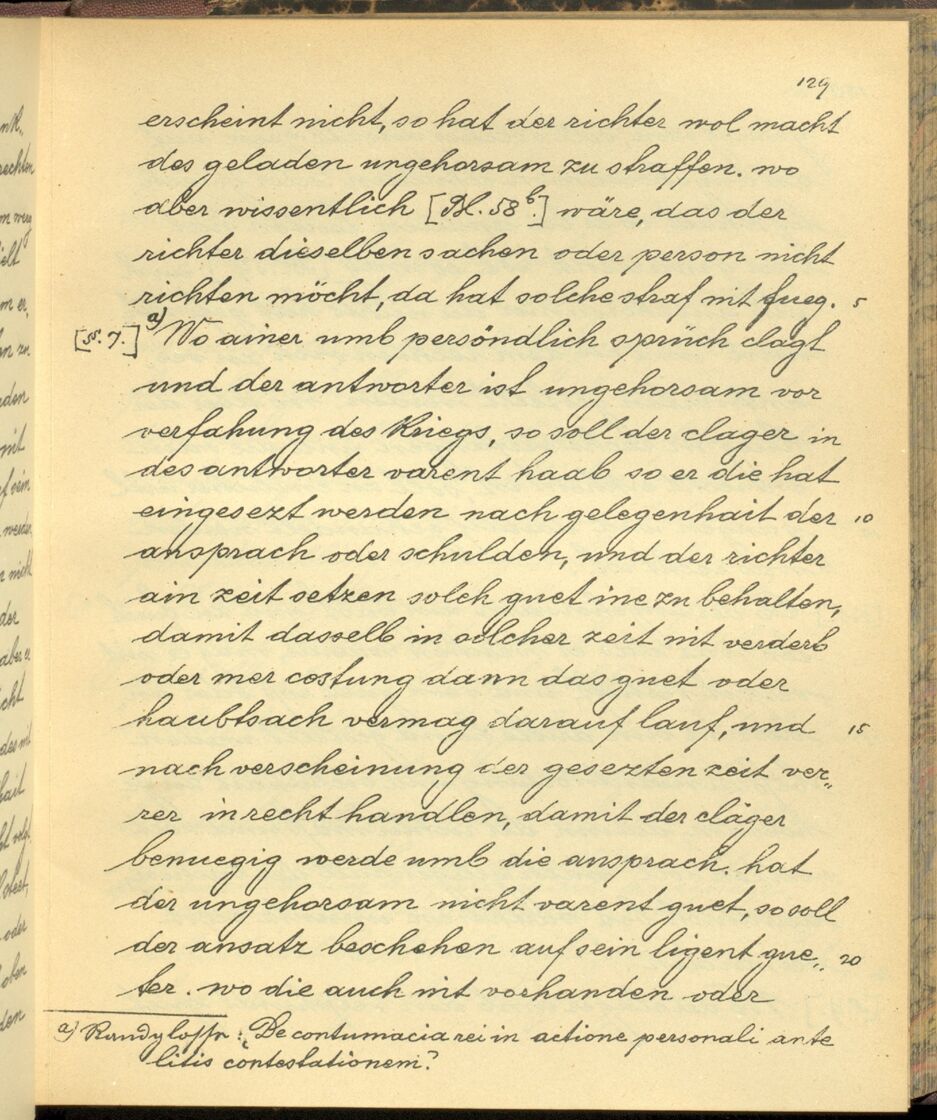 129
erscheint nicht, so hat der richter wol macht
des geladen ungehorsam zu straffen. wo
aber wissentlich [Bl. 58b.] wäre, das der
richter dieselben sachen oder person nicht
richten möcht, da hat solche straf nit fueg. 5
[§. 7.] a) Wo ainer umb persöndlich sprüch clagt
und der antworter ist ungehorsam vor
verfahung des Kriegs, so soll der clager in
des antworter varent haab so er die hat
eingesezt werden nach gelegenhait der 10
ansprach oder schulden, und der richter
ain zeit setzen solch guet ine zu behalten,
damit dasselb in solcher zeit nit verderb
oder mer costung dann das guet oder
haubtsach vermag darauf lauf, und 15
nach verscheinung der gesezten zeit ver„
rer in recht handlen, damit der cläger
benuegig werde umb die ansprach. hat
der ungehorsam nicht varent guet, so soll
der ansatz beschehen auf sein ligent gue„ 20
ter. wo die auch nit vorhanden oder
a) Randglosse: De contumacia rei in actione personali ante
litis contestationem.